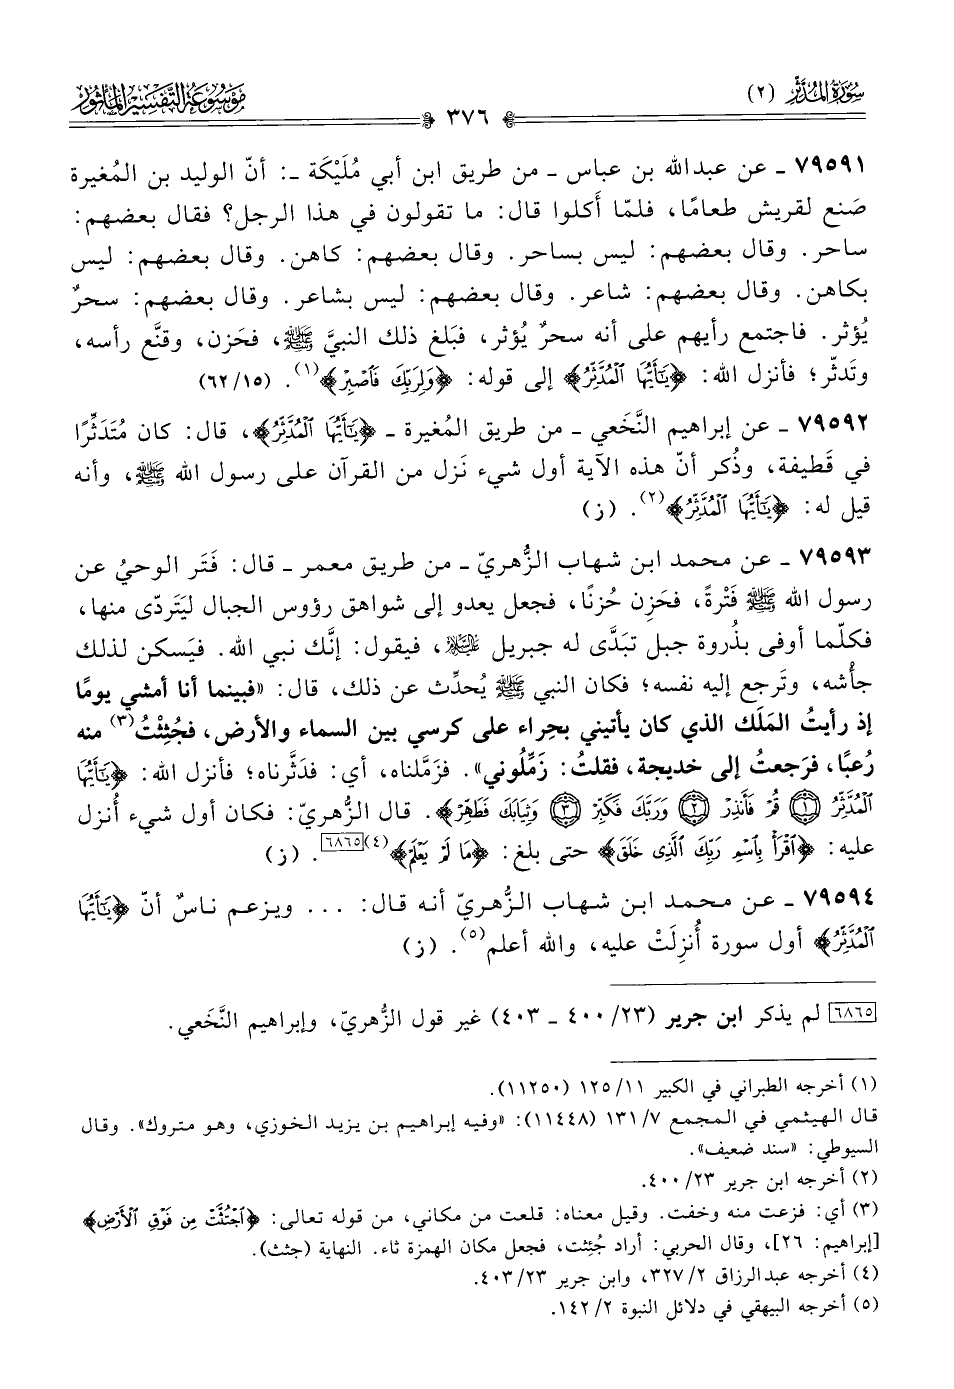 سُورَةُ المُدَّثِّرِ (٢)
مَوْسُوعَةُ التَّفْسِيرِ المَأْثُورِ
٣٧٦
٧٩٥٩١ ـ عن عبدالله بن عباس ـ من طريق ابن أبي مُلَيْكَة ـ: أنّ الوليد بن المُغيرة
صَنع لقريش طعامًا، فلمّا أَكلوا قال: ما تقولون في هذا الرجل؟ فقال بعضهم:
ساحر. وقال بعضهم: ليس بساحر. وقال بعضهم: كاهن. وقال بعضهم: ليس
بكاهن. وقال بعضهم: شاعر. وقال بعضهم: ليس بشاعر. وقال بعضهم: سحرٌ
يُؤثر. فاجتمع رأيهم على أنه سحرٌ يُؤثر، فبَلغ ذلك النبيَّ ﷺ، فحَزن، وقنَّع رأسه،
وتَدثّر؛ فأنزل الله: ﴿يَـٰٓأَيُّهَا ٱلْمُدَّثِّرُ﴾ إلى قوله: ﴿وَلِرَبِّكَ فَٱصْبِرْ﴾(١). (٦٢/١٥)
٧٩٥٩٢ ـ عن إبراهيم النَّخَعي ـ من طريق المُغيرة ـ ﴿يَـٰٓأَيُّهَا ٱلْمُدَّثِّرُ﴾، قال: كان مُتَدثِّرًا
في قَطيفة، وذُكر أنّ هذه الآية أول شيء نَزل من القرآن على رسول الله ﷺ، وأنه
قيل له: ﴿يَـٰٓأَيُّهَا ٱلْمُدَّثِّرُ﴾(٢). (ز)
٧٩٥٩٣ ـ عن محمد ابن شهاب الزُّهريّ ـ من طريق معمر ـ قال: فَتَر الوحيُ عن
رسول الله ﷺ فَتْرةً، فحَزِن حُزنًا، فجعل يعدو إلى شواهق رؤوس الجبال ليَتَردّى منها،
فكلّما أوفى بذُروة جبل تبَدَّى له جبريل عليه السلام، فيقول: إنَّك نبي الله. فيَسكن لذلك
جأْشه، وتَرجع إليه نفسه؛ فكان النبي ﷺ يُحدِّث عن ذلك، قال: «فبينما أنا أمشي يومًا
إذ رأيتُ المَلَك الذي كان يأتيني بحِراء على كرسي بين السماء والأرض، فجُئِثْتُ(٣) منه
رُعبًا، فرَجعتُ إلى خديجة، فقلتُ: زَمِّلُوني». فزَمَّلناه، أي: فدَثَّرناه؛ فأنزل الله: ﴿يَـٰٓأَيُّهَا
ٱلْمُدَّثِّرُ ﴿١﴾ قُمْ فَأَنذِرْ ﴿٢﴾ وَرَبَّكَ فَكَبِّرْ ﴿٣﴾ وَثِيَابَكَ فَطَهِّرْ﴾. قال الزُّهريّ: فكان أول شيء أُنزل
عليه: ﴿ٱقْرَأْ بِٱسْمِ رَبِّكَ ٱلَّذِى خَلَقَ﴾ حتى بلغ: ﴿مَا لَمْ يَعْلَمْ﴾(٤)[٦٨٦٥]. (ز)
٧٩٥٩٤ ـ عن محمد ابن شهاب الزُّهريّ أنه قال: ... ويزعم ناسٌ أنّ ﴿يَـٰٓأَيُّهَا
ٱلْمُدَّثِّرُ﴾ أول سورة أُنزِلَتْ عليه، والله أعلم(٥). (ز)
[٦٨٦٥] لم يذكر ابن جرير (٢٣/ ٤٠٠ ـ ٤٠٣) غير قول الزُّهريّ، وإبراهيم النَّخَعي.
(١) أخرجه الطبراني في الكبير ١١/ ١٢٥ (١١٢٥٠).
قال الهيثمي في المجمع ٧/ ١٣١ (١١٤٤٨): «وفيه إبراهيم بن يزيد الخوزي، وهو متروك». وقال
السيوطي: «سند ضعيف».
(٢) أخرجه ابن جرير ٢٣/ ٤٠٠.
(٣) أي: فزعت منه وخفت. وقيل معناه: قلعت من مكاني، من قوله تعالى: ﴿ٱجْتُثَّتْ مِن فَوْقِ ٱلْأَرْضِ﴾
[إبراهيم: ٢٦]، وقال الحربي: أراد جُئِثت، فجعل مكان الهمزة ثاء. النهاية (جثث).
(٤) أخرجه عبدالرزاق ٢/ ٣٢٧، وابن جرير ٢٣/ ٤٠٣.
(٥) أخرجه البيهقي في دلائل النبوة ٢/ ١٤٢.